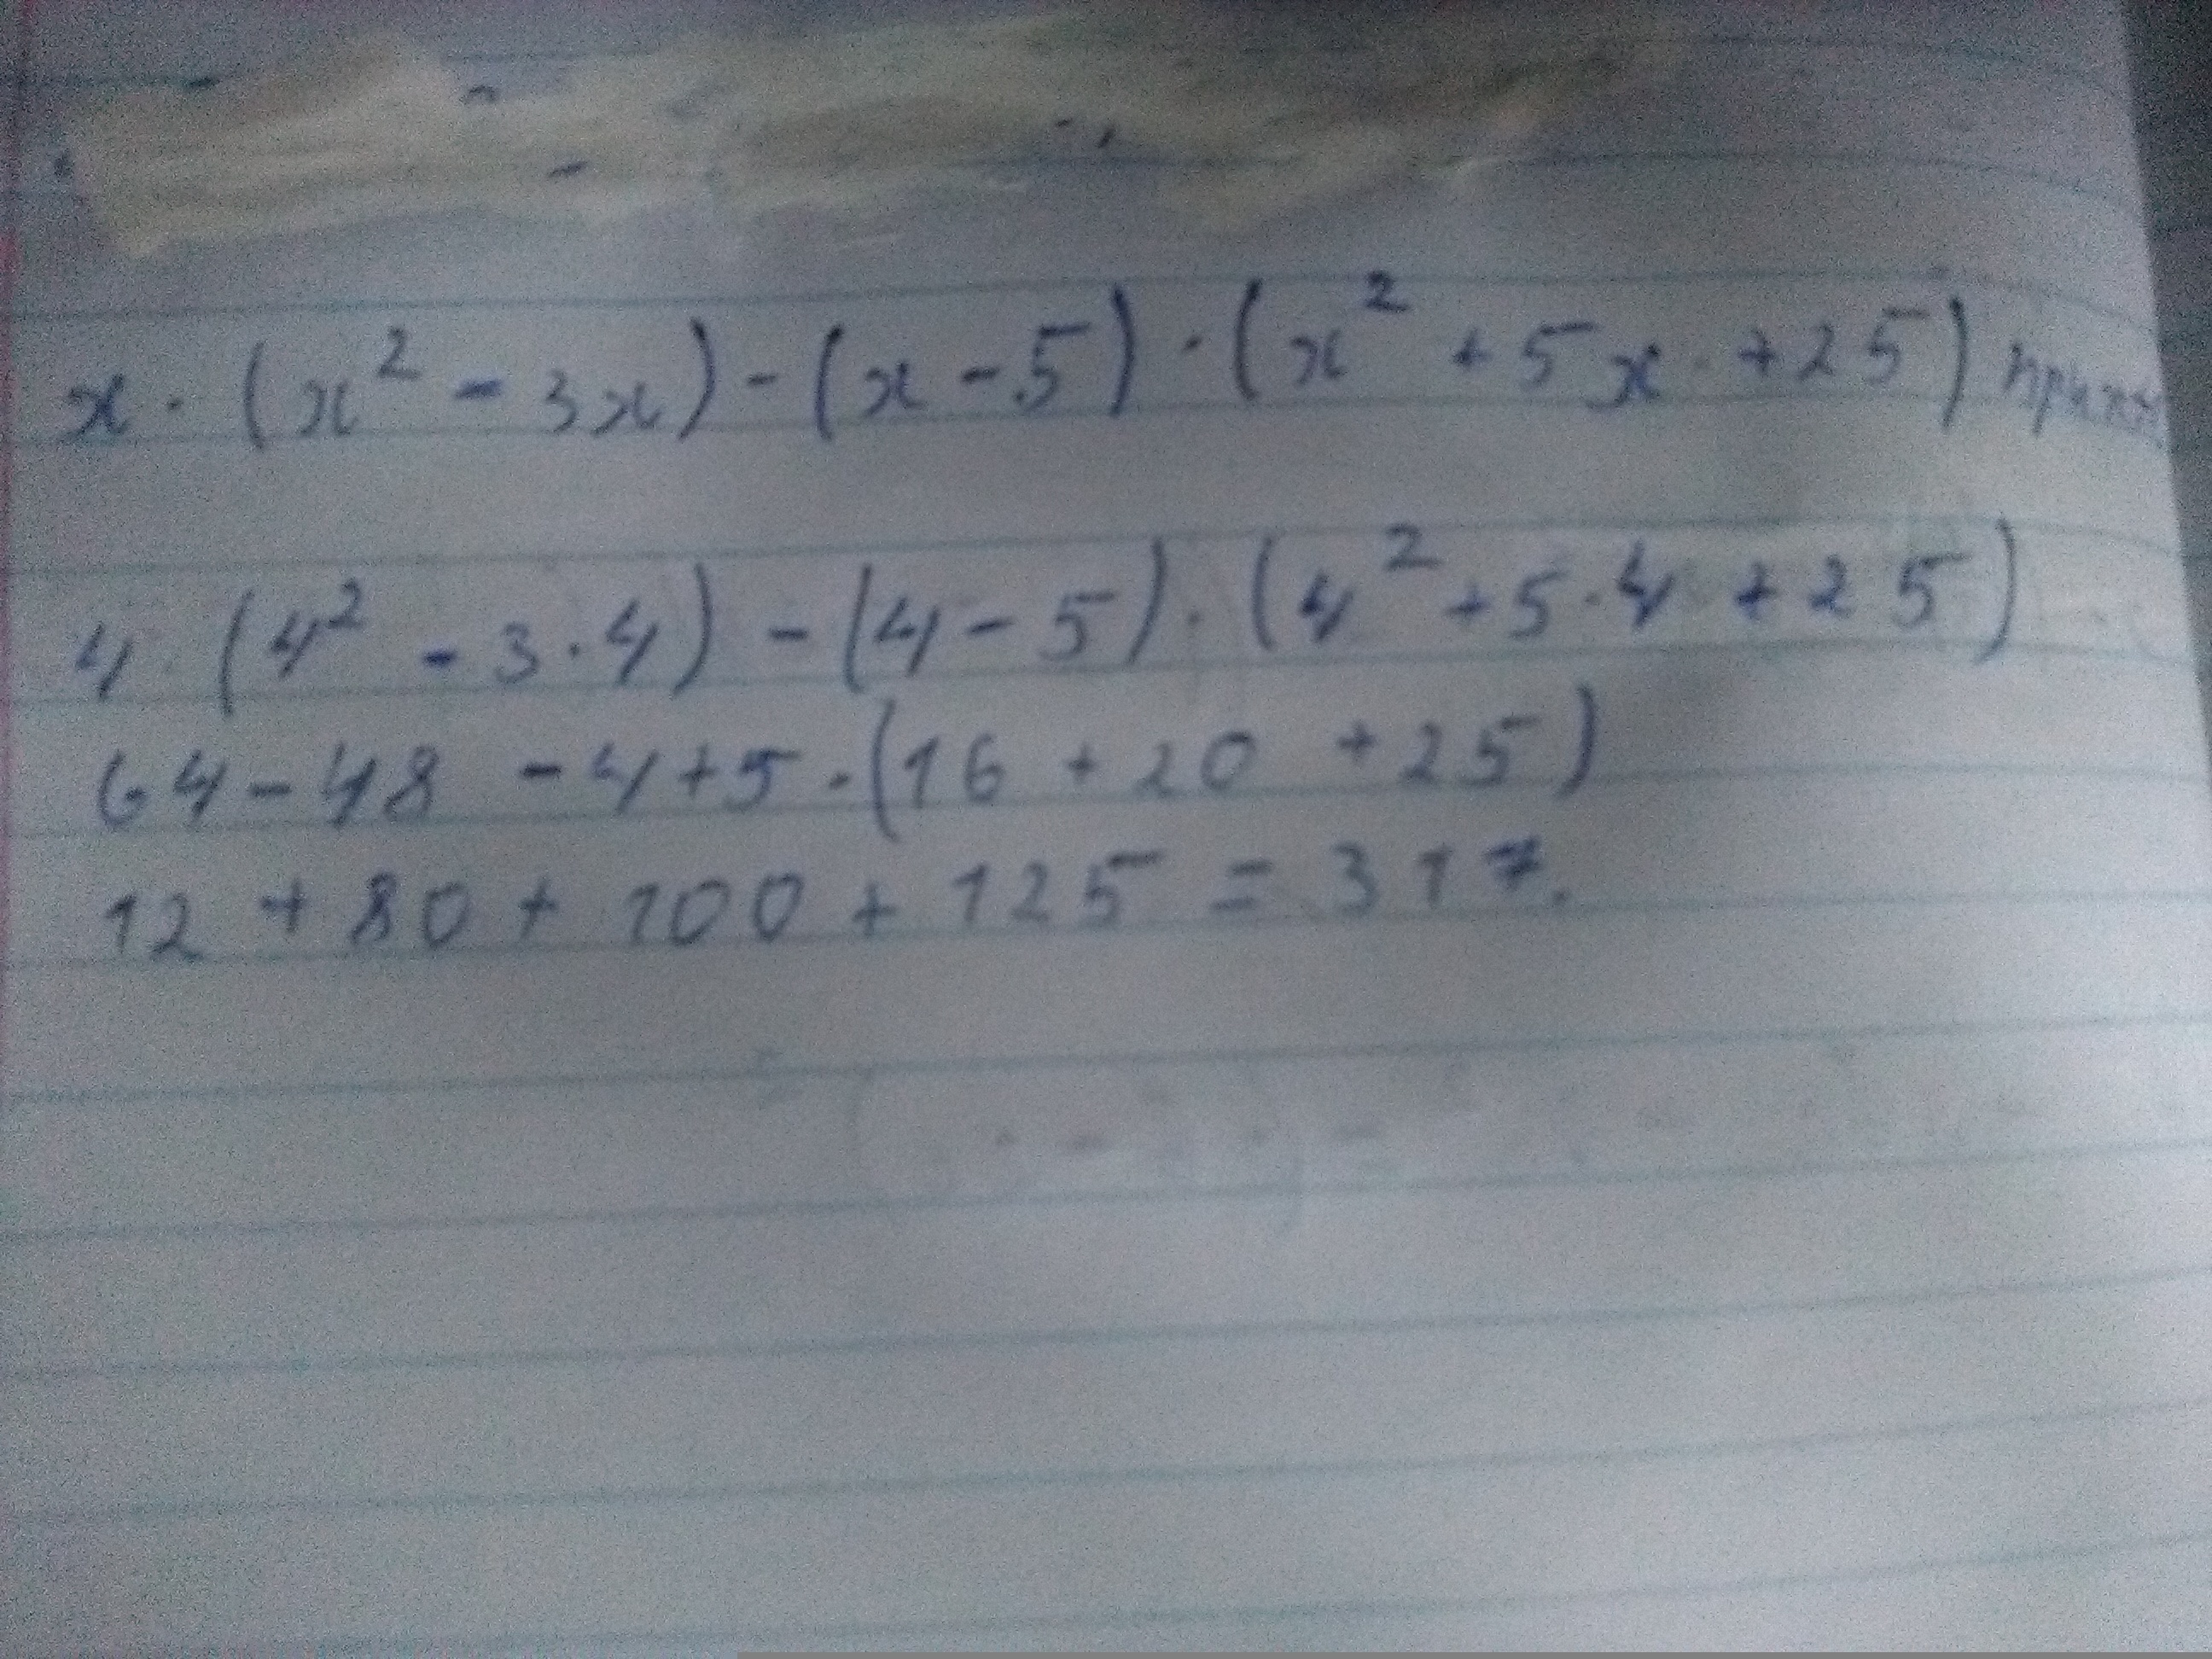 x · (x² - 3x) - (x - 5) · (x² + 5x + 25)
4 · (4² - 3 · 4) - (4 - 5) · (4² + 5 · 4 + 25)
64 - 48 - 4 + 5 · (16 + 20 + 25)
12 + 80 + 100 + 125 = 317.